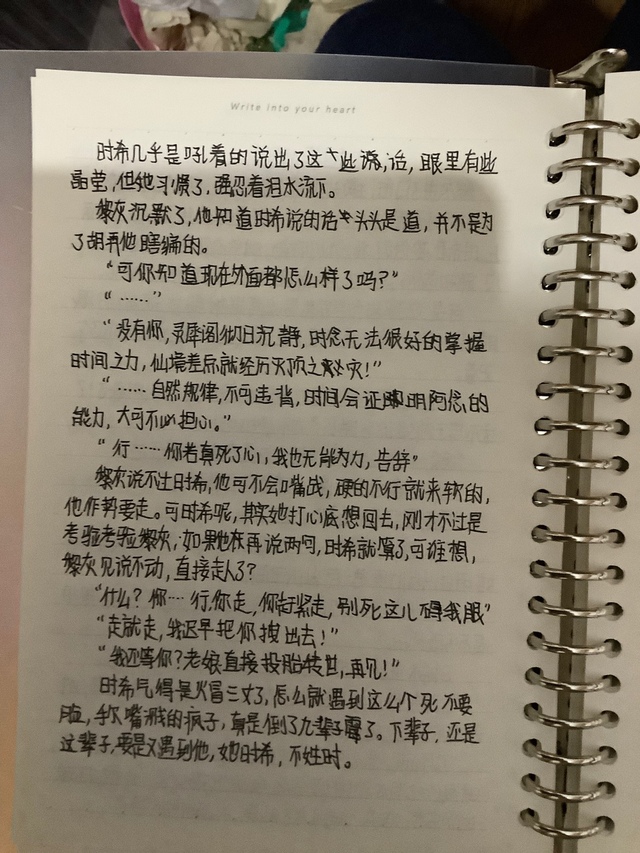 Write into your heart
时希几乎是吼着的说出了这些话,眼里有些
晶莹,但她习惯了,强忍着泪水流下。
黎灰沉默了,他知道时希说的话头头是道,并不是为
了胡弄他瞎编的。
“可你知道现在外面都怎么样了吗?”
“……”
“没有你,灵犀阁彻日沉静,时念无法很好的掌握
时间之力,仙境差点就经历灭顶之灾!”
“……自然规律,不可违背,时间会证明阿念的
能力,大可不必担心。”
“行……你若真死了心,我也无能为力,告辞”
黎灰说不过时希,他可不会嘴战,硬的不行就来软的,
他作势要走。可时希呢,其实她打心底想回去,刚才不过是
考验考验黎灰,如果他再说两句,时希就算了,可谁想,
黎灰见说不动,直接走人了?
“什么?你…行,你走,你赶紧走,别死这儿碍我眼”
“走就走,我迟早把你拽出去!”
“我还等你?老娘直接投胎转世,再见!”
时希气得是火冒三丈了,怎么就遇到这么个死不要
脸,嘴贱的疯子,真是倒了九辈子霉了。下辈子,还是
这辈子,要是又遇到他,她时希,不姓时。